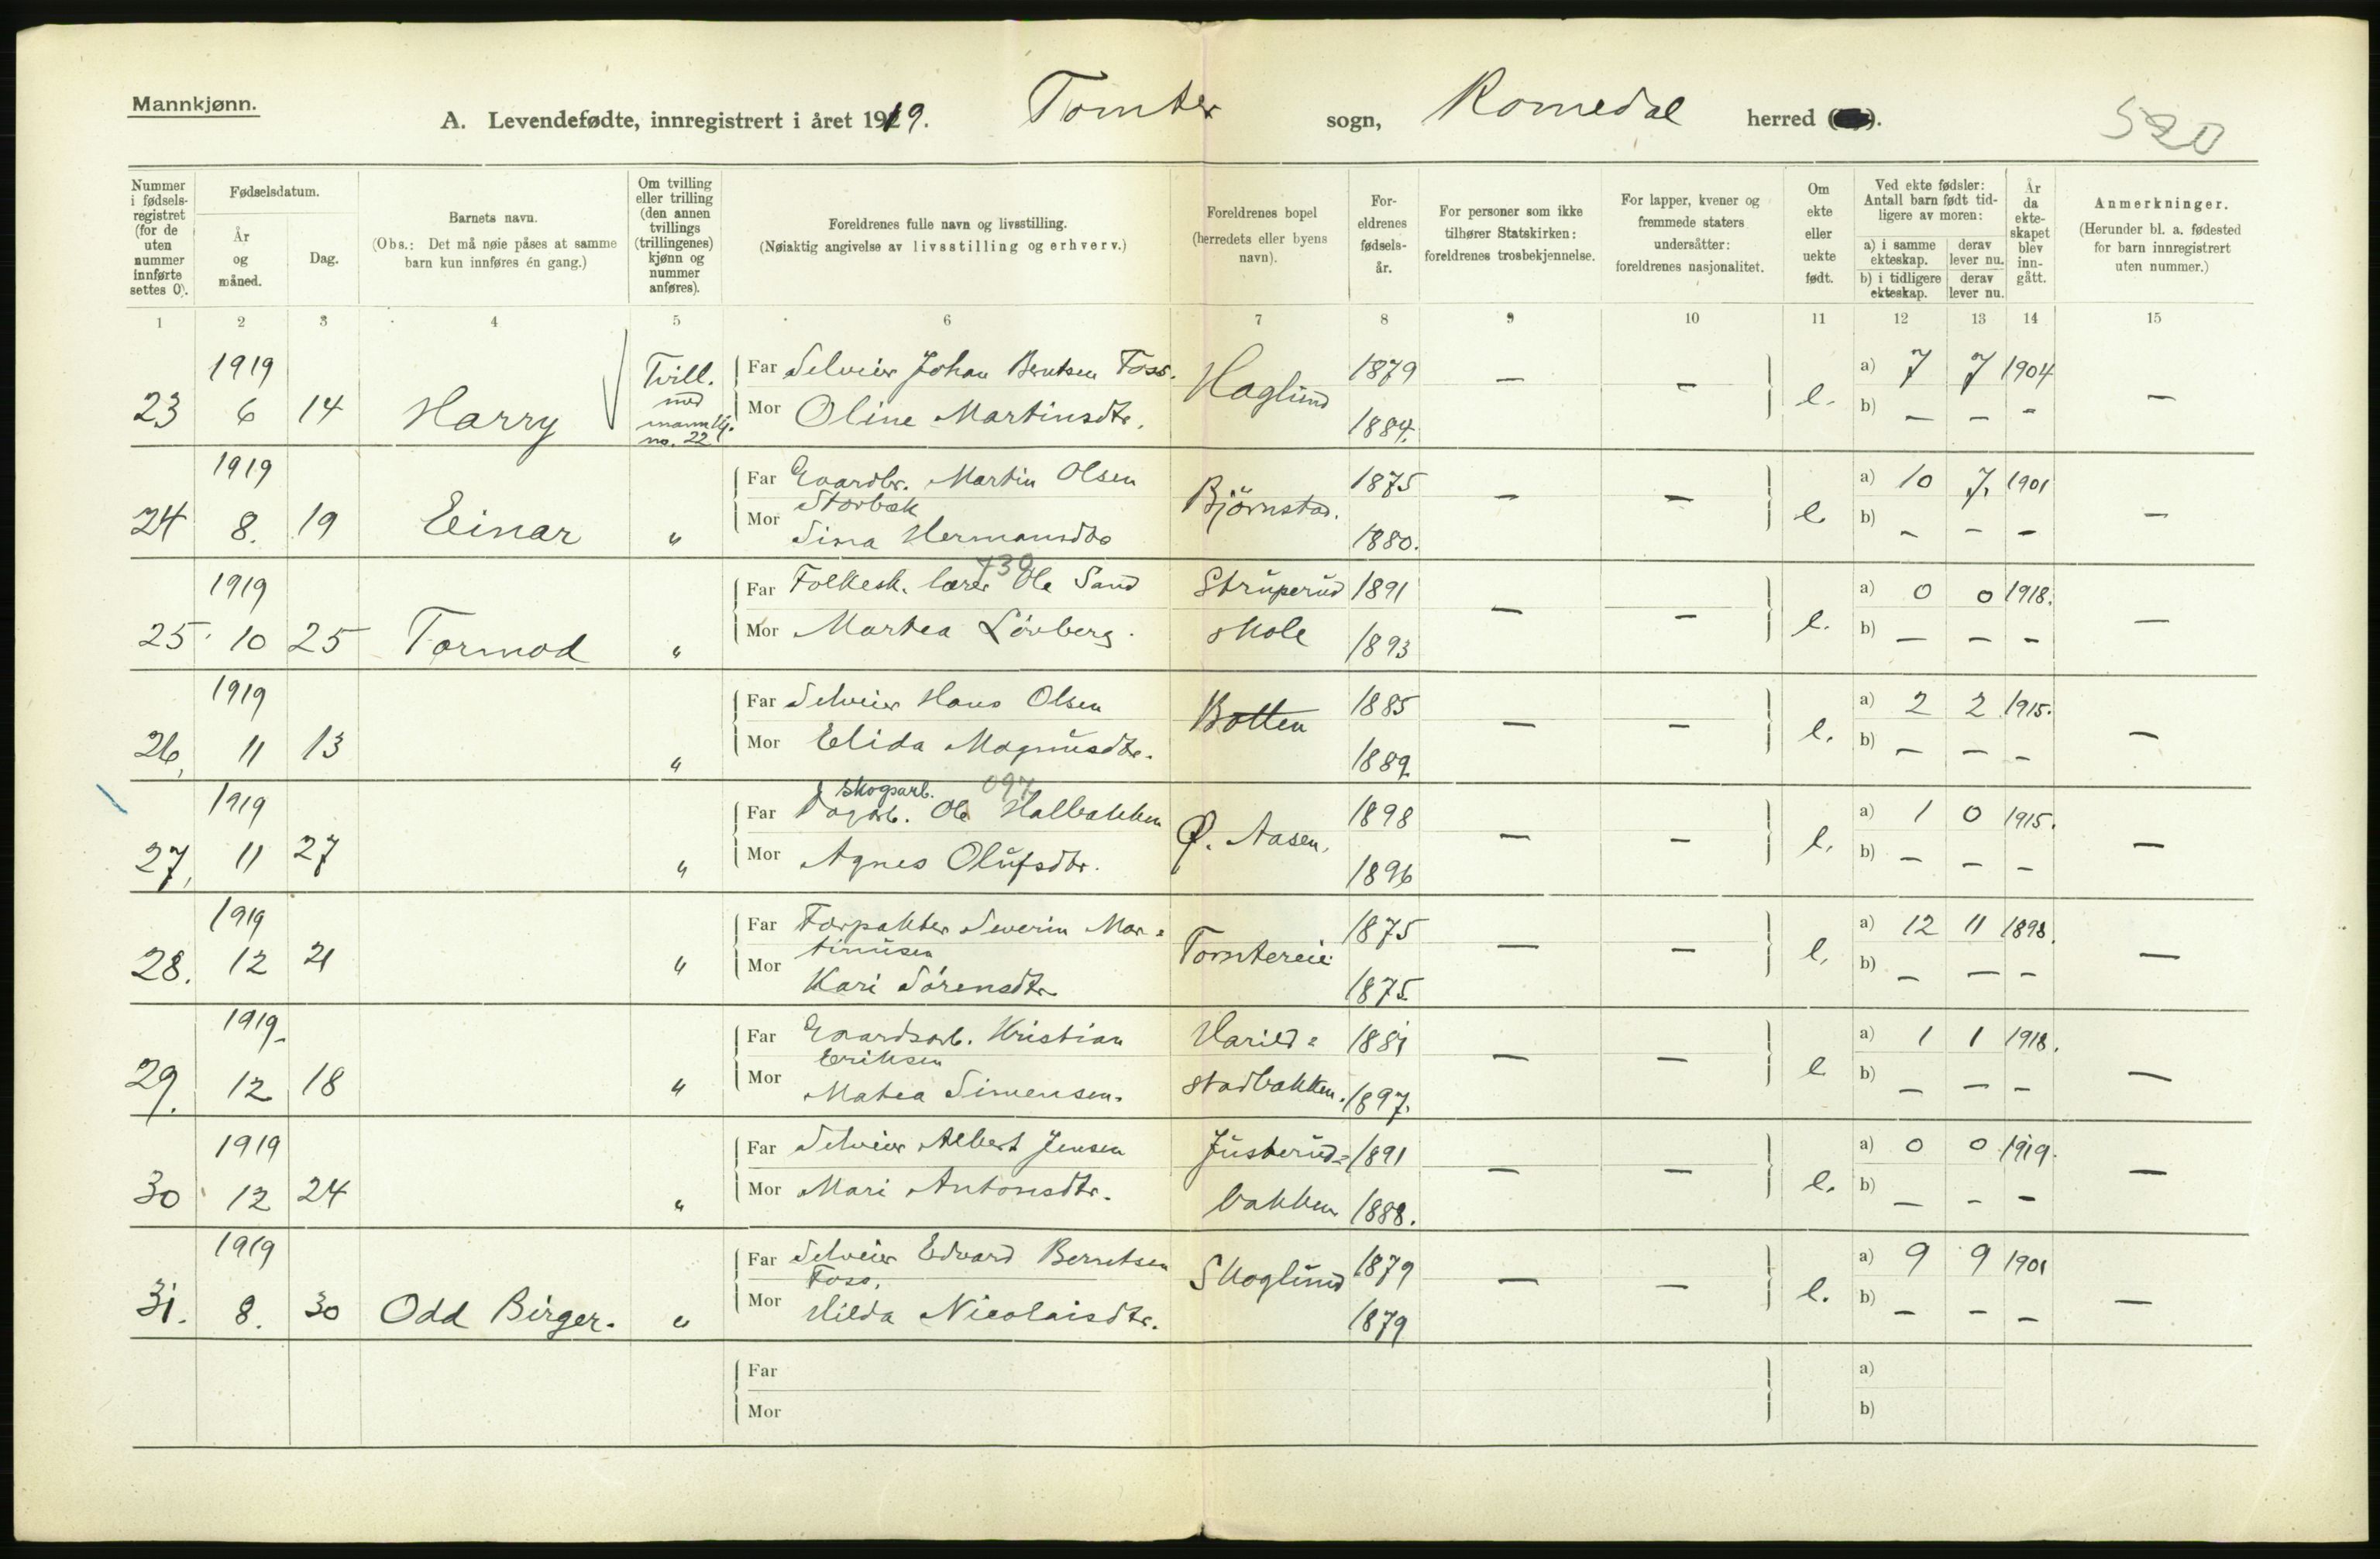 Mannkjønn.
A. Levendefødte, innregistrert i året 1919. Tomter sogn, Romedal herred
520
Nummer i fødsels-registret (for de uten nummer innførte settes 0).
Fødselsdatum.
År og måned.
Dag.
Barnets navn.
(Obs.: Det må nøie påses at samme barn kun innføres én gang.)
Om tvilling eller trilling (den annen tvillings (trillingenes) kjønn og nummer anføres).
Foreldrenes fulle navn og livsstilling.
(Nøiaktig angivelse av livsstilling og erhverv.)
Foreldrenes bopel (herredets eller byens navn).
For-eldrenes fødsels-år.
For personer som ikke tilhører Statskirken: foreldrenes trosbekjennelse.
For lapper, kvener og fremmede staters undersåtter: foreldrenes nasjonalitet.
Om ekte eller uekte født.
Ved ekte fødsler: Antall barn født tid-ligere av moren:
a) i samme ekteskap. derav lever nu.
b) i tidligere ekteskap. derav lever nu.
År da ekte-skapet blev inn-gått.
Anmerkninger.
(Herunder bl. a. fødested for barn innregistrert uten nummer.)
1 2 3 4 5 6 7 8 9 10 11 12 13 14 15
1919 Tvill. Far Selveier Johan Berntsen Foss. Haglund 1879 — — e. a) 7 7 1904 —
23 6 14 Harry med mannkj. no. 22 Mor Oline Martinsdtr. 1884. b) — — -
1919 Far Gaardbr. Martin Olsen Björnstad. 1875 — — e a) 10 7. 1901 —
Storbæk
24 8. 19 Einar " Mor Sina Hermansdtr 1880. b) - - -
430
1919 Far Folkesk. lærer Ole Sand Struperud 1891 — — e. a) 0 0 1918. —
25 10 25 Tormod " Mor Marthea Lövberg. skole 1893 b) — — -
1919 Far Selveier Hans Olsen Botten 1885 — — e. a) 2 2 1915. —
26, 11 13 " Mor Elida Magnusdtr. 1889. b) — — -
skogsarb. 097
1919 Far Dagarb. Ole Halbakken Ø. Aasen. 1898 — — e. a) 1 0 1915. —
27, 11 27 " Mor Agnes Olufsdtr. 1896 b) — — -
1919 Far Forpakter Severin Mar= Tomtereie 1875 — — e. a) 12 11 1898. —
tinusen
28. 12 21 " Mor Kari Sörensdtr 1875 b) — — -
1919. Far Gaardsarb. Kristian Harild= 1889 — — e a) 1 1 1918. —
Eriksen
29. 12 18 " Mor Mathea Simensen. stadbakken. 1897. b) — — -
1919 Far Selveier Albert Jensen Justerud= 1891 — — e. a) 0 0 1919. —
30 12 24 " Mor Mari Antonsdtr. bakken 1888. b) — - -
1919 Far Selveier Edvard Berntsen Skoglund 1879 — — e. a) 9 9 1901 —
Foss.
31. 8. 30 Odd Birger. " Mor Hilda Nicolaisdtr. 1879 b) — — -
Far a)
Mor b)